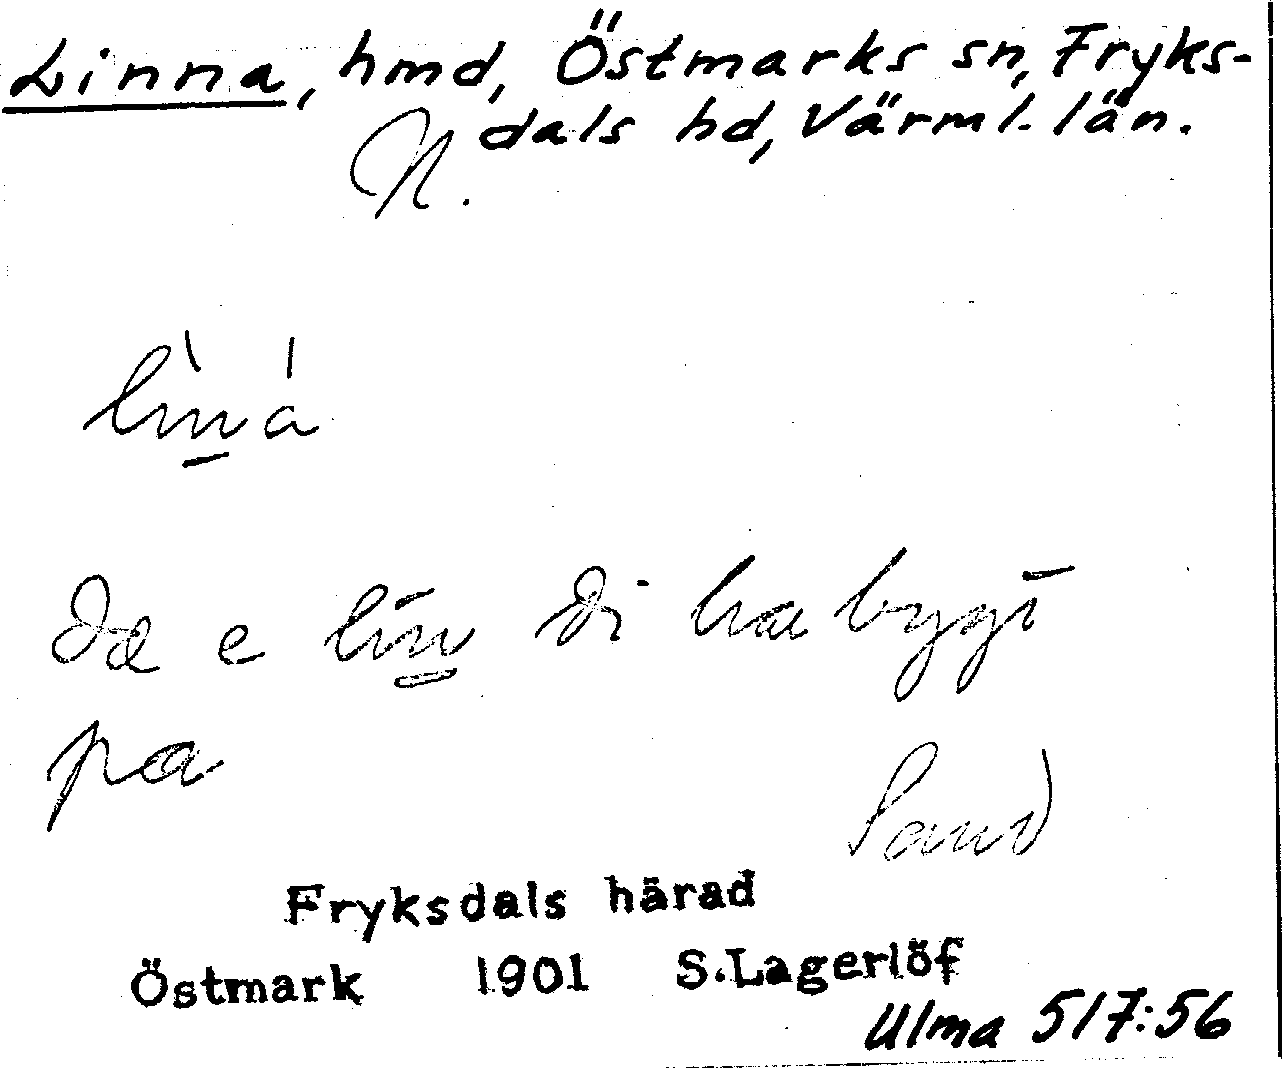 Linna, hmd, Östmarks sn, Fryks-
dals hd, Värml. län.
N.
lìn̲á
Dæ e lin̲ di hæ bygt
pa
Sand
Fryksdals härad
Östmark 1901 S.Lagerlöf
Ulma 517:56